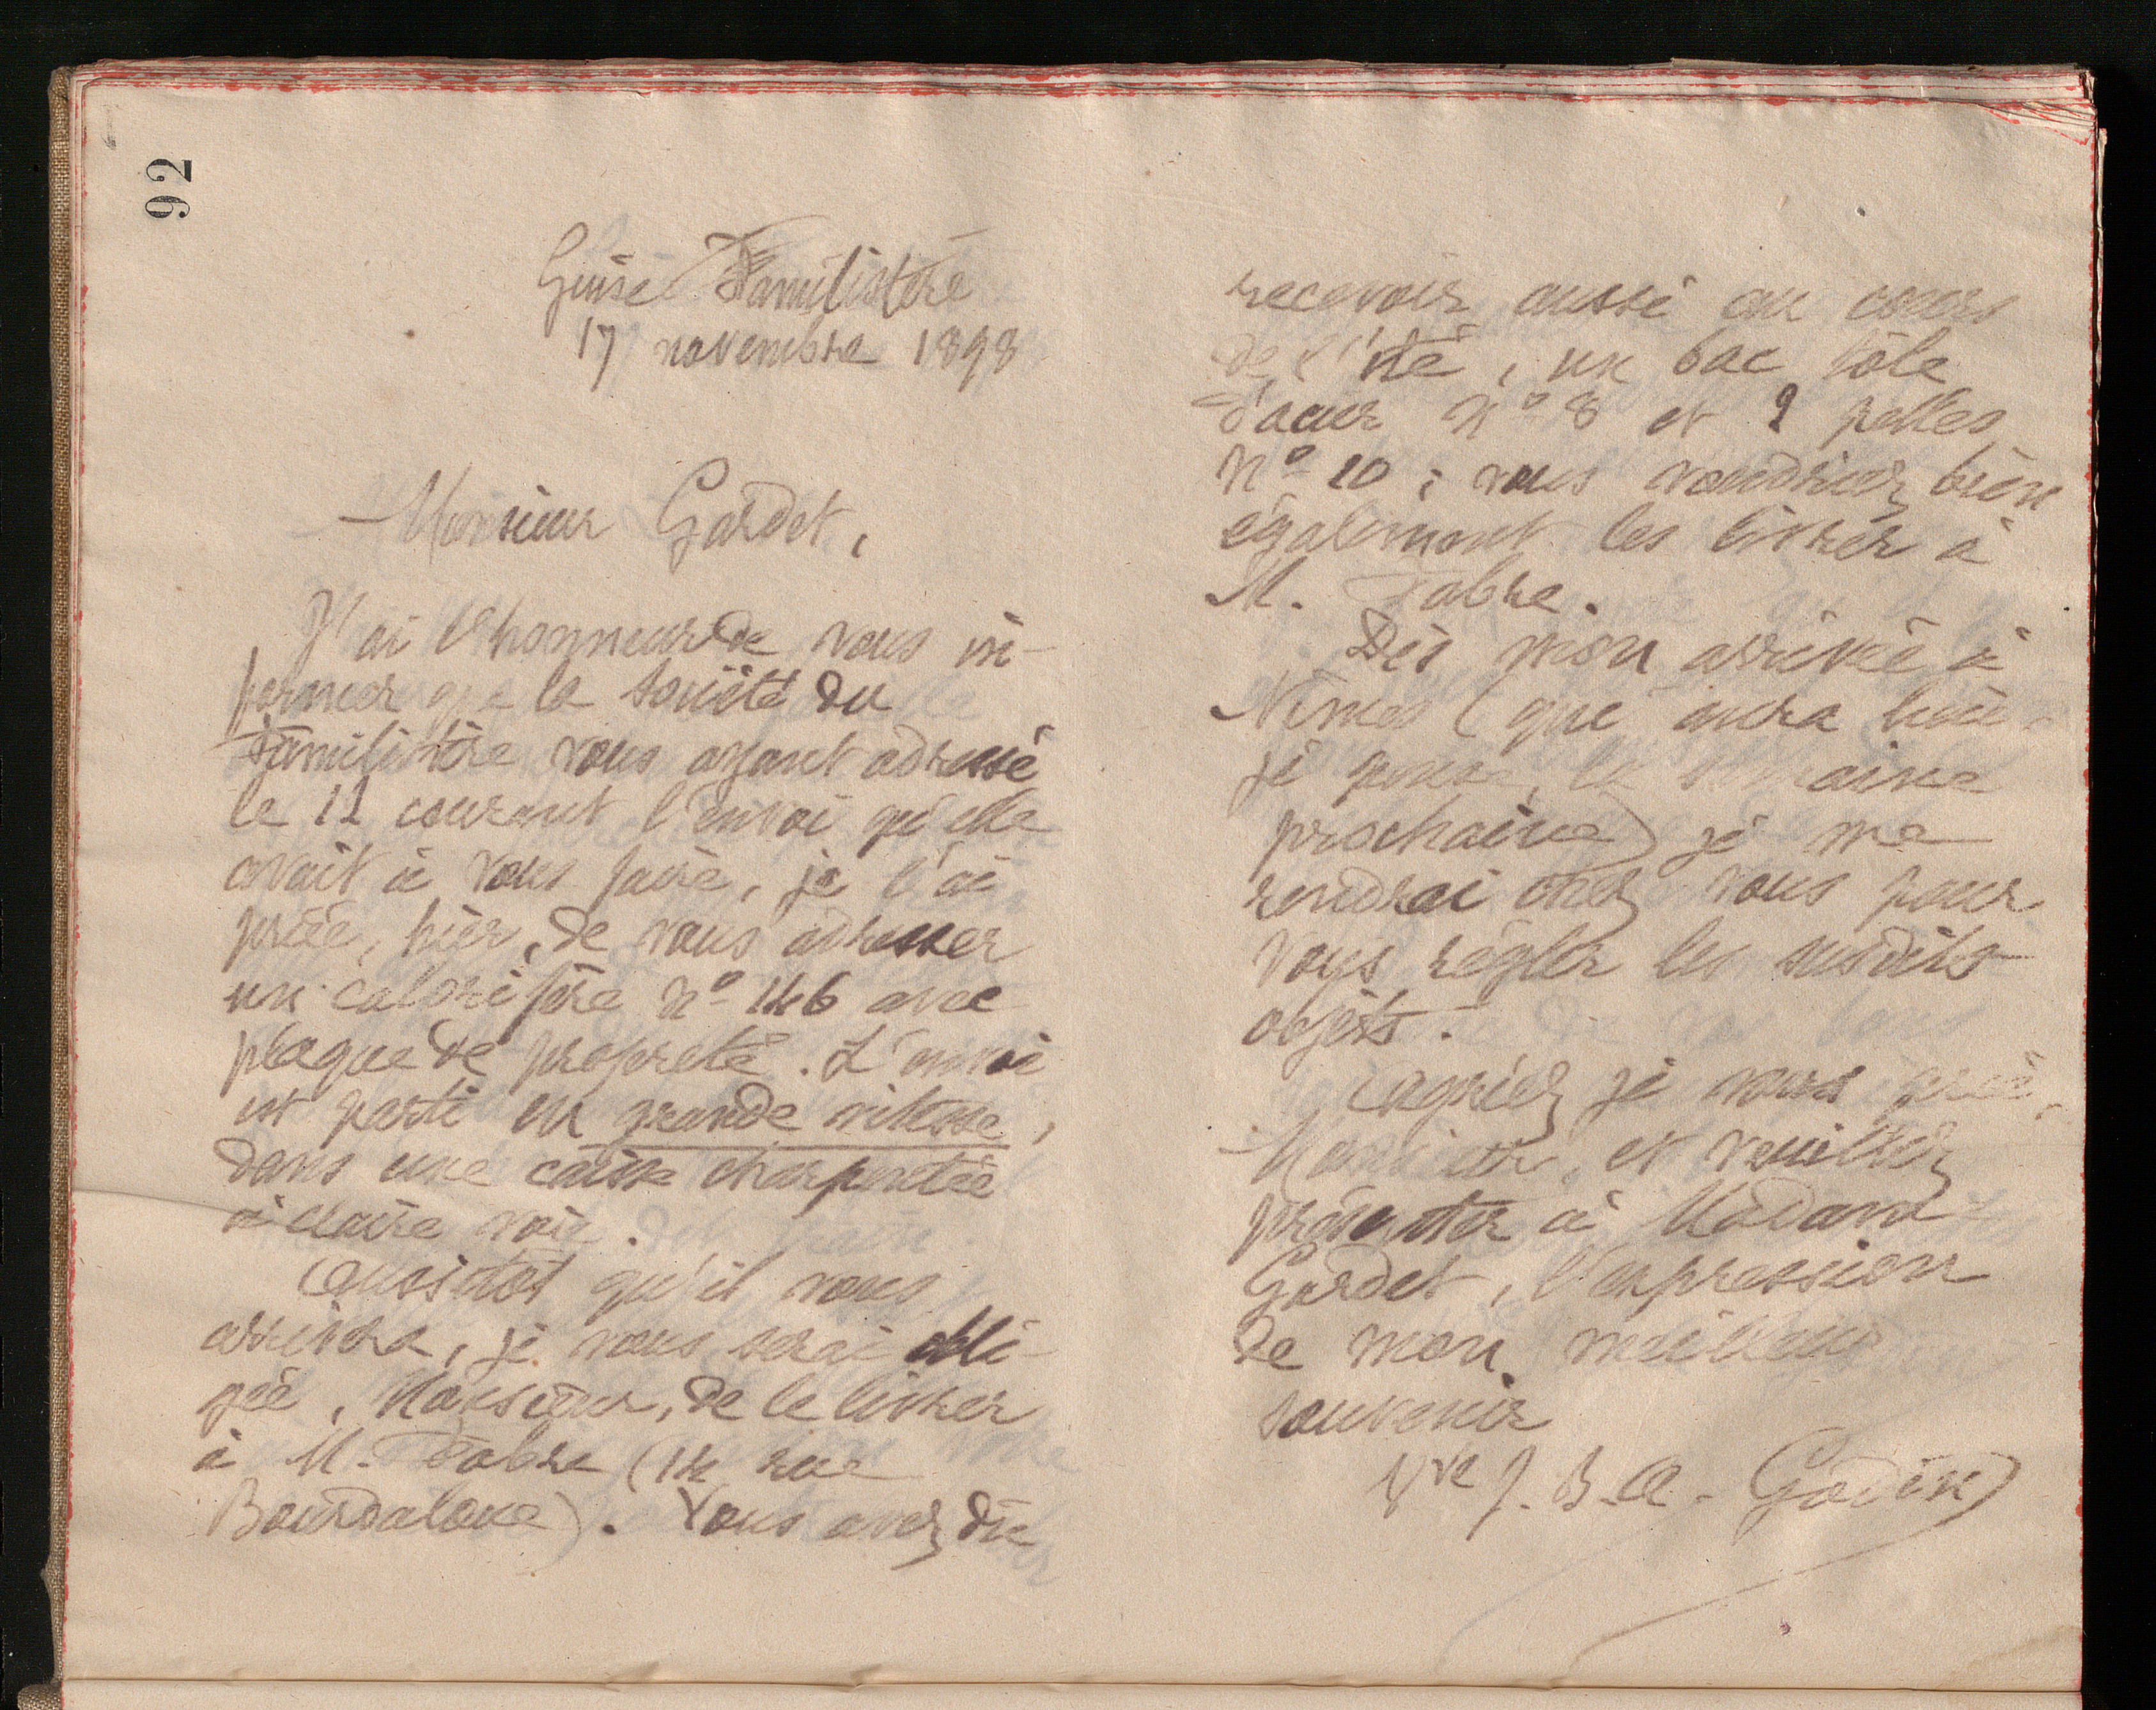 92
Guise Familistère
17 novembre 1898
Monsieur Gardet,
J'ai l'honneur de vous in-
former que la société du
Familistère vous ayant adressé
le 12 courant l'envoi qu'elle
avait à vous faire, je l'ai
priée, hier, de vous adresser
un calorifère Nº 146 avec
plaque de propreté. L'envoi
est parti en grande vitesse,
dans une caisse charpentée
à claire voie.
Aussitôt qu'il vous
arrivera, je vous serai obli-
gée, Monsieur, de le livrer
à M. Fabre (14 rue
Bourdaloue). Vous avez dû
recevoir aussi au cours
de l'été, un bac tôle
d'acier Nº 8 et 2 pelles
Nº 10 ; vous voudriez bien
également les livrer à
M. Fabre.
Dès mon arrivée à
Nîmes (qui aura lieu,
je pense, la semaine
prochaine) je me
rendrai chez vous pour
vous régler les susdits
objets.
Agréez je vous prie,
Monsieur, et veuillez
présenter à Madame
Gardet, l'expression
de mon meilleur
souvenir
Vve J. B. A. Godin